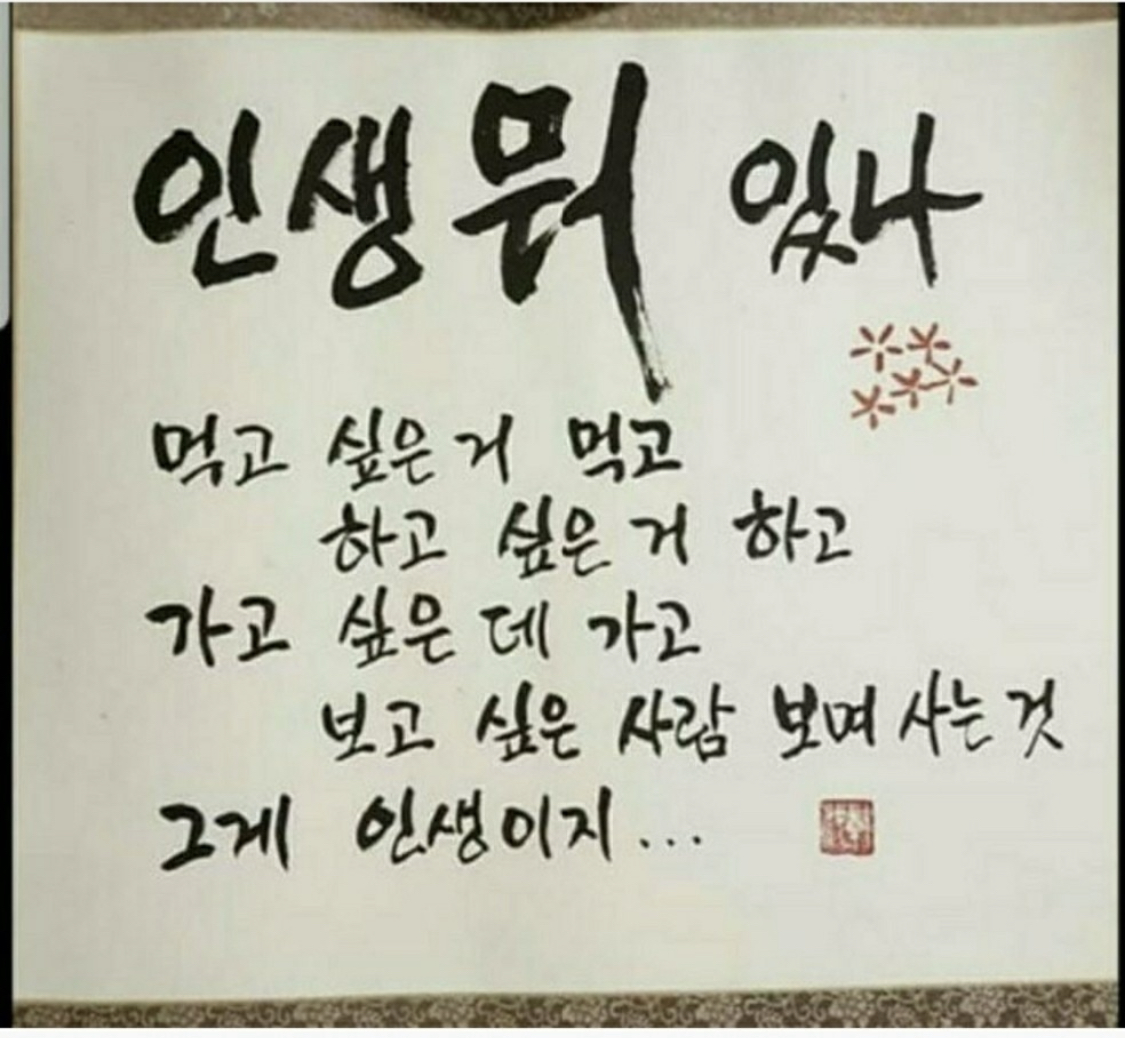 인생 뭐 있나
먹고 싶은거 먹고
하고 싶은거 하고
가고 싶은데 가고
보고 싶은 사람 보며 사는 것
그게 인생이지...